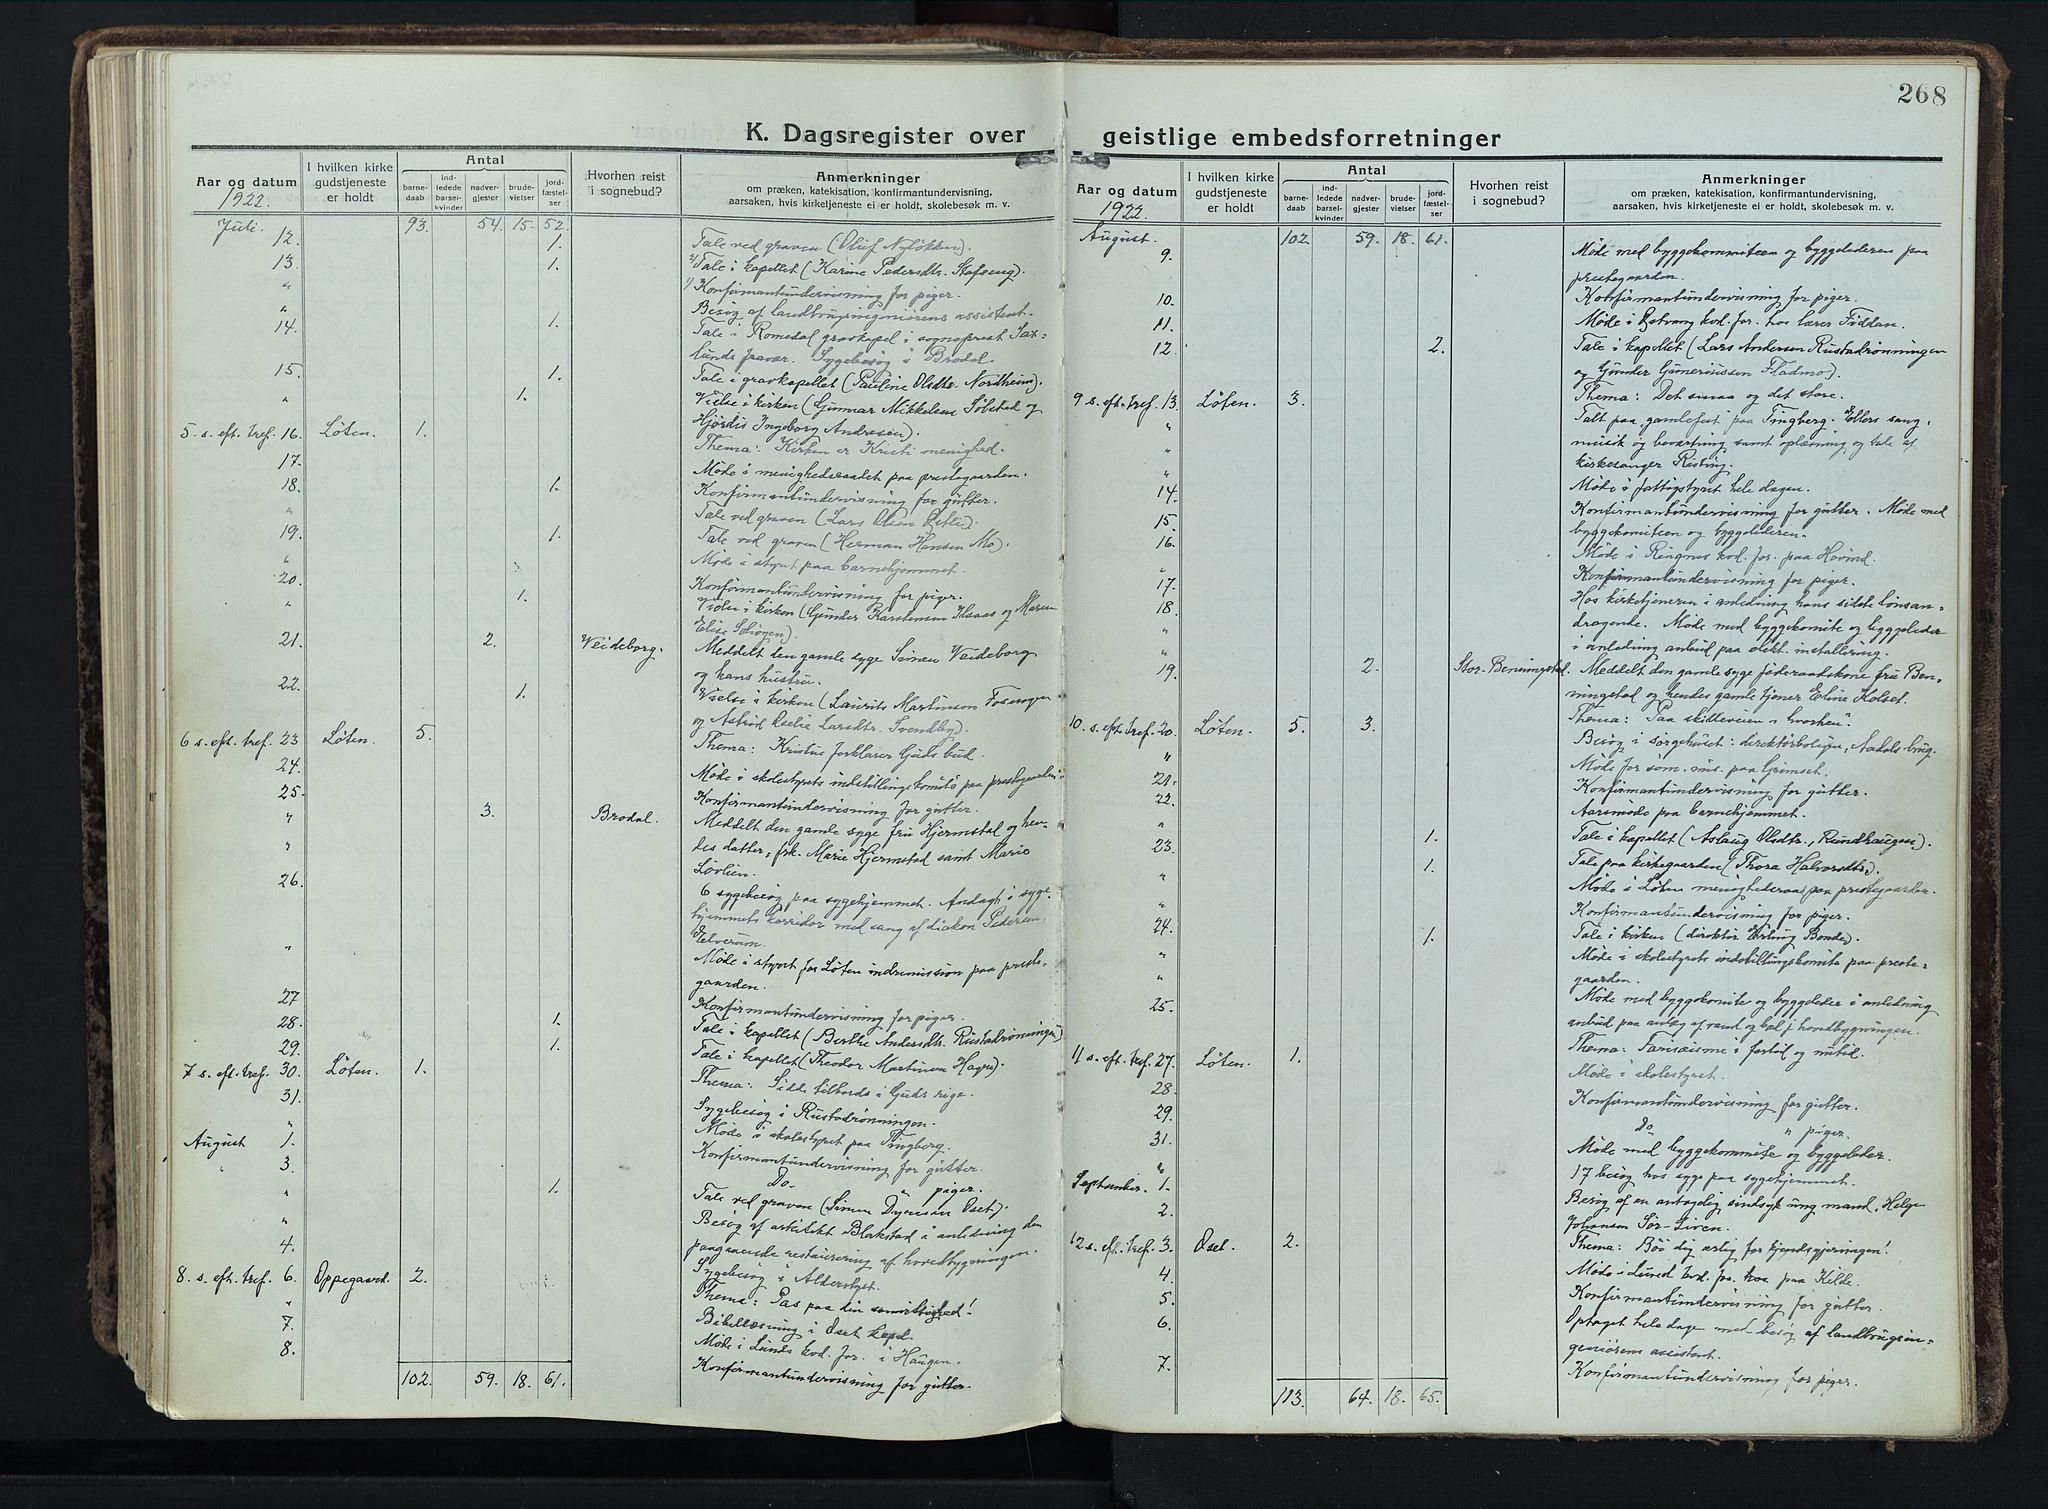 268
K. Dagsregister over
geistlige embedsforretninger
Aar og datum
1922.
I hvilken kirke gudstjeneste er holdt
Antal
barne-daab
ind-ledede barsel-kvinder
nadver-gjester
brude-vielser
jord-fæstel-ser
Hvorhen reist i sognebud?
Anmerkninger
om præken, katekisation, konfirmantundervisning, aarsaken, hvis kirketjeneste ei er holdt, skolebesøk m. v.
Juli. 93. 54. 15. 52.
12. 1. Tale ved graven (Oluf Nyløkken).
13. 1. 2/ Tale i kapellet (Karine Pedersdtr. Stafseng).
" 1/ Konfirmantundervisning for piger.
" Besøg af landbrugsingeniørens assistent.
14. 1. Tale i Romedal gravkapel i sogneprest Sax-
lunds fravær. Sygebesøg i Brodal.
15. 1. Tale i gravkapellet (Pauline Olsdtr. Nordheim).
" 1. Vielse i kirken (Gunnar Mikkelsen Sølstad og
Hjørdis Ingeborg Andresen).
5. s. eft. tref. 16. Løten. 1. Thema: Kirken er Kristi menighed.
17. Møde i menighedsraadet paa prestegaarden.
18. 1. Konfirmantundervisning for gutter.
" Tale ved graven (Lars Olsen).
19. 1. Tale ved graven (Herman Hansen Mo).
" Møde i styret paa barnehjemmet.
20. Konfirmantundervisning for piger.
" 1. Vielse i kirken (Gunder Karstensen og Maren
Elise).
21. 2. Veideborg. Meddelt den gamle syge Simen Veideborg
og hans hustru.
22. 1. Vielse i kirken (Laurits Martinson Foseogen
og Astrid Larsdtr. Svendby).
6 s. eft. tref. 23 Løten. 5. Thema: Kristus forklarer Guds bud.
24. Møde i skolestyrets indstillingskomite paa prestegaarden.
25. Konfirmantundervisning for gutter.
" 3. Brodal. Meddelt den gamle syge fru Hjermstad og hen-
des datter, frk. Marie Hjermstad samt Marie
Løvlien.
26. 6 sygebesøg paa sygehjemmet. Andagt i syge-
hjemmets korridor med sang af diakon Pedersen,
Elverum.
" Møde i styret for Løten indremission paa preste-
gaarden.
27 Konfirmantundervisning for piger.
28. 1. Tale i kapellet (Berthe Andersdtr. Rustadrønningen)
29. 1. Tale i kapellet (Theodor Martinsen Hagen).
7 s. eft. tref. 30. Løten. 1. Thema: Sidde tilbords i Guds rige.
31. Sygebesøg i Rustadrønningen.
" Møde i skolestyret paa Tingberg.
August 1. Konfirmantundervisning for gutter.
" 3. Do " piger.
" 1. Tale ved graven (Simen Oset).
" Besøg af arkitekt Blakstad i anledning den
paagaaende restaurering af hovedbygningen.
4. Sygebesøg i Alderslyst.
8. s. eft. tref. 6. Oppegaard. 2. Thema: Pas paa din samvittighed!
" Bibellæsning i Oset kapel.
7. Møde i Lunds kvd. for. i Haugen.
8. Konfirmantundervisning for gutter.
102. 59. 18. 61.
Aar og datum
1922.
I hvilken kirke gudstjeneste er holdt
Antal
barne-daab
ind-ledede barsel-kvinder
nadver-gjester
brude-vielser
jord-fæstel-ser
Hvorhen reist i sognebud?
Anmerkninger
om præken, katekisation, konfirmantundervisning, aarsaken, hvis kirketjeneste ei er holdt, skolebesøk m. v.
August. 102. 59. 18. 61.
9. Møde med byggekommiteen og byggelederen paa
prestegaarden.
10. Konfirmantundervisning for piger.
11. Møde i kvd. for. hos lærer Fiddan.
12. 2. Tale i kapellet (Lars Andersen Rustadrønningen
og Gunder Gunerussen Fladmo).
9 s. eft. tref. 13. Løten. 3. Thema: Det smaa og det store.
" Talt paa "gamlefest" paa Tingberg. Ellers sang,
musik og bevertning samt oplæsning og tale af
kirkesanger Risting.
14. Møde i fattigstyret hele dagen.
15. Konfirmantundervisning for gutter. Møde med
byggekomiteen og byggelederen.
16. Møde i Ringnes kvd. for. paa Hovind.
17. Konfirmantundervisning for piger.
18. Hos kirketjeneren i anledning hans sidste lønsan-
dragende. Møde med byggekomite og byggeleder
i anledning anbud paa elekt. installering.
19. 2. Stor-Benningstad. Meddelt den gamle syge føderaadskone fru Ben-
ningstad og hendes gamle tjener Eline Kolset.
10. s. eft. tref. 20. Løten. 5. 3. Thema: Paa skilleveien - hvorhen?
" Besøg i sørgehuset: direktørboligen, Aadals brug.
21. Møde for søm. mis. paa Grimset.
22. Konfirmantundervisning for gutter.
" Aarsmøde paa barnehjemmet.
23. 1. Tale i kapellet (Aslaug Olsdtr. Rundhaugen).
" 1. Tale paa kirkegaarden (Thora Halvorsdtr.).
" Møde i Løten menighedsraad paa prestegaarden.
24. Konfirmantundervisning for piger.
" 1. Tale i kirken (direktør Erling Bonde).
" Møde i skolestyrets indstillingskomite paa preste-
gaarden.
25. Møde med byggekomite og byggeleder i anledning
anbud paa af vand og bad i hovedbygningen.
11 s. eft. tref. 27. Løten. 1. Thema: Farisæisme i fortid og nutid.
28. Møde i skolestyret.
29. Konfirmantundervisning for gutter.
31. Do " piger.
" Møde med byggekommite og byggeleder.
September. 1. 17 besøg hos syge paa sygehjemmet.
2. Besøg af en antagelig sindssyk ung mand, Helge
Johansen Sør-Liven.
12 s. eft. tref. 3. Oset. 2. Thema: Bøi dig ærlig for kjendsgjerningen!
4. Møde i Lund kvd. for. paa Kilde.
5. Konfirmantundervisning for gutter.
6. Optaget hele dagen med besøg af landbrugsin-
geniørens assistent.
7. Konfirmantundervisning for piger.
113. 64. 18. 65.